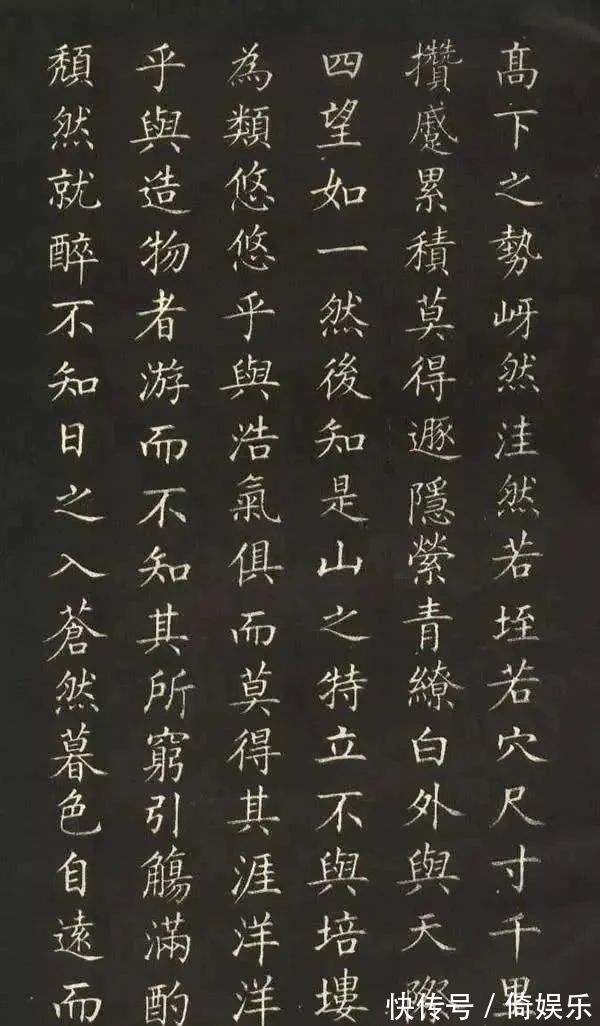 高下之勢岈然洼然若垤若穴尺寸千里
攢蹙累積莫得遯隱縈青繚白外與天際
四望如一然後知是山之特立不與培塿
為類悠悠乎與浩氣俱而莫得其涯洋洋
乎與造物者游而不知其所窮引觴滿酌
頹然就醉不知日之入蒼然暮色自遠而
快传号／倚娱乐